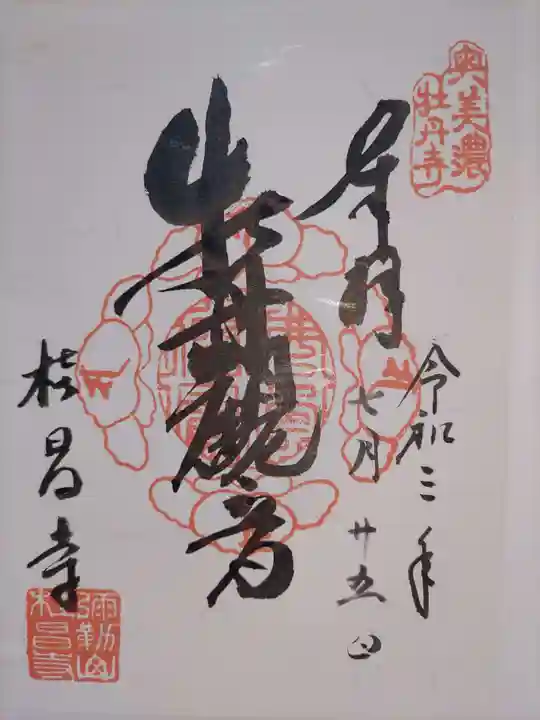 奥美濃
牡丹寺
奉拝
令和三年
七月廿五日
観音
桂昌寺
彌勒山
桂昌寺